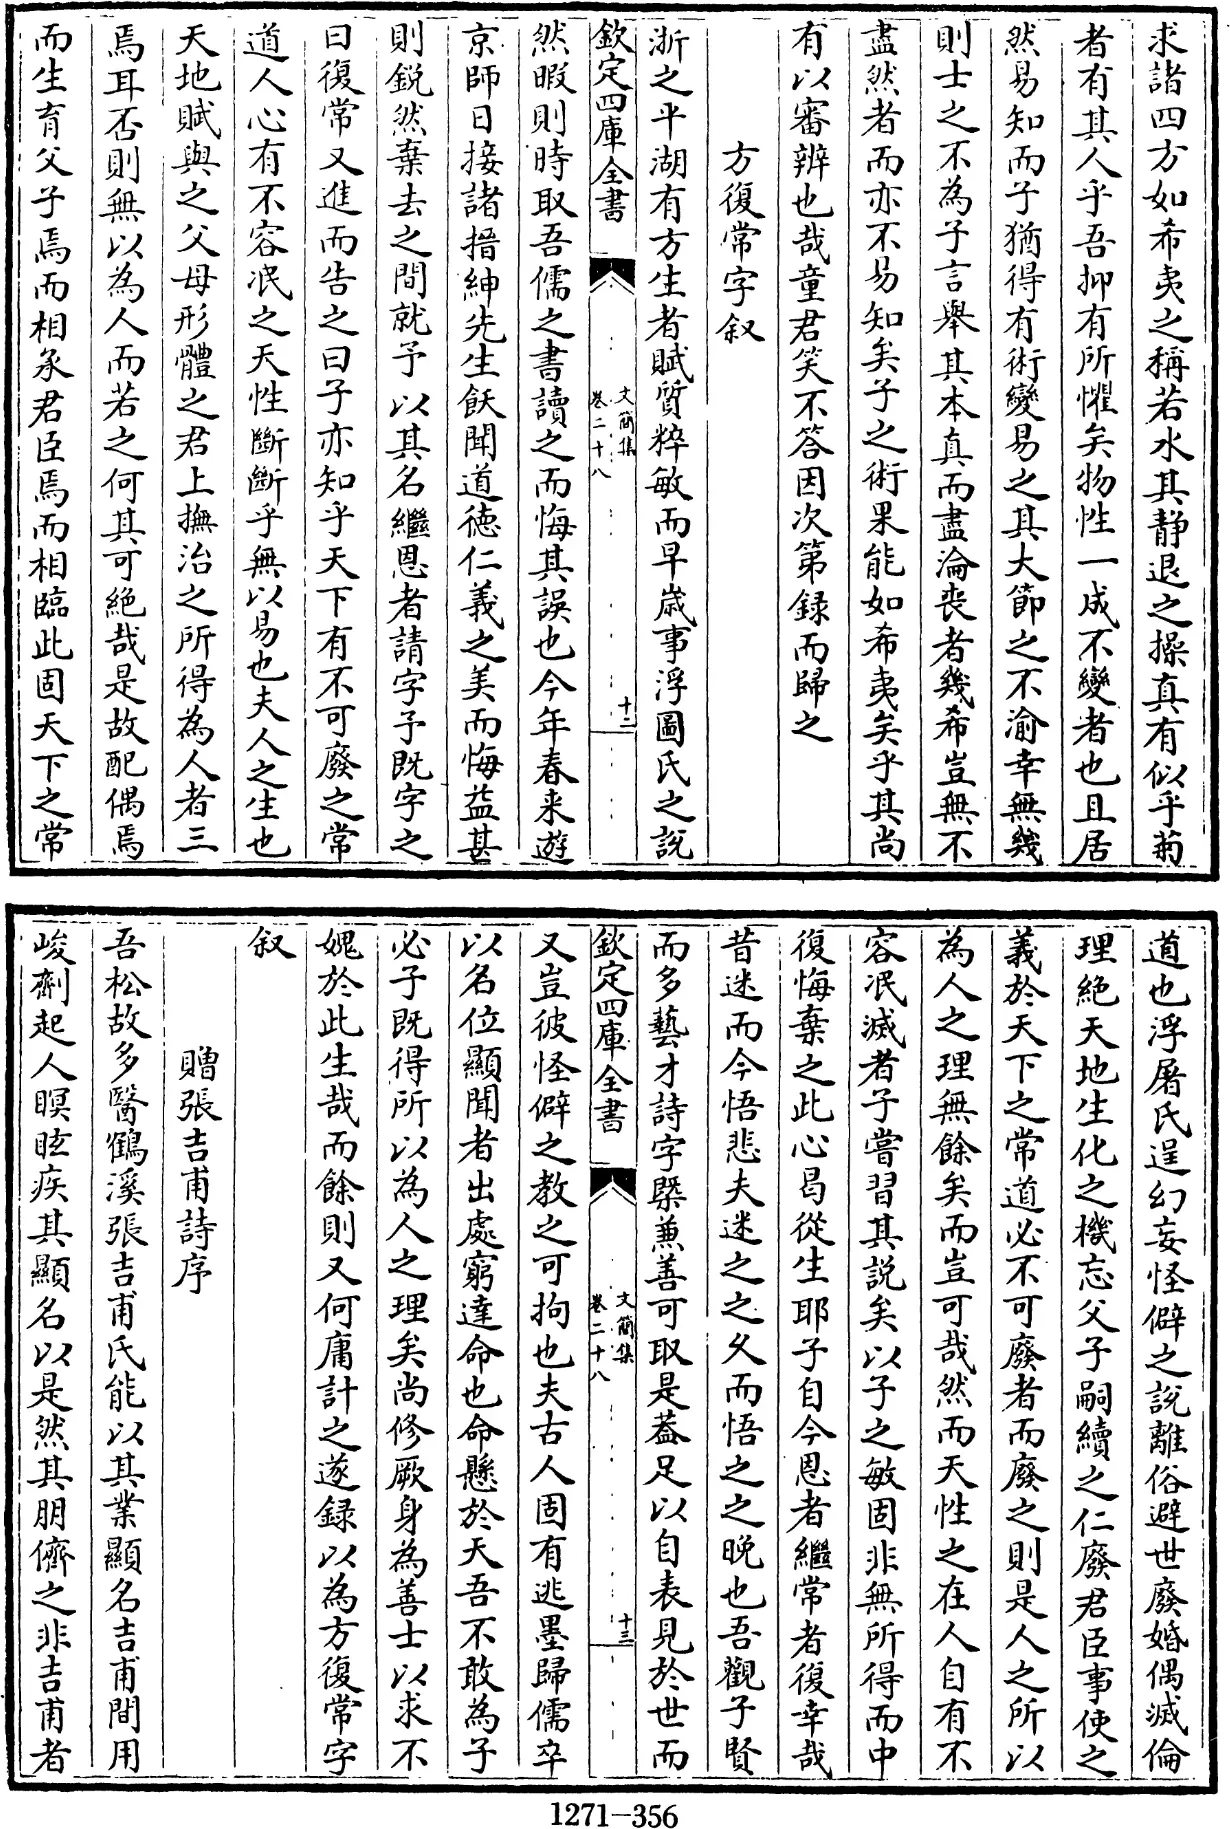 求諸四方如希夷之稱若水其靜退之操真有似乎菊
者有其人乎吾抑有所懼矣物性一成不變者也且居
然易知而子猶得有術變易之其大節之不渝幸無幾
則士之不為子言舉其本真而盡淪喪者幾希豈無不
盡然者而亦不易知矣子之術果能如希夷矣乎其尚
有以審辨也哉童君笑不答因次第録而歸之
方復常字叙
浙之平湖有方生者賦質粹敏而早歲事浮圖氏之說
欽定四庫全書
文簡集
卷二十八
十二
然暇則時取吾儒之書讀之而悔其誤也今年春来遊
京師日接諸搢紳先生飫聞道德仁義之美而悔益甚
則鋭然棄去之間就予以其名繼恩者請字予既字之
曰復常又進而告之曰子亦知乎天下有不可廢之常
道人心有不容泯之天性斷斷乎無以易也夫人之生也
天地賦與之父母形體之君上撫治之所得為人者三
焉耳否則無以為人而若之何其可絶哉是故配偶焉
而生育父子焉而相承君臣焉而相臨此固天下之常
道也浮屠氏逞幻妄怪僻之說離俗避世廢婚偶滅倫
理絶天地生化之機忘父子嗣續之仁廢君臣事使之
義於天下之常道必不可廢者而廢之則是人之所以
為人之理無餘矣而豈可哉然而天性之在人自有不
容泯滅者子嘗習其說矣以子之敏固非無所得而中
復悔棄之此心曷從生耶子自今恩者繼常者復幸哉
昔迷而今悟悲夫迷之之久而悟之之晚也吾觀子賢
而多藝才詩字槩兼善可取是葢足以自表見於世而
欽定四庫全書
文簡集
卷二十八
十三
又豈彼怪僻之教之可拘也夫古人固有逃墨歸儒卒
以名位顯聞者出處窮達命也命懸於天吾不敢為子
必子既得所以為人之理矣尚修厥身為善士以求不
媿於此生哉而餘則又何庸計之遂録以為方復常字
叙
贈張吉甫詩序
吾松故多醫鶴溪張吉甫氏能以其業顯名吉甫間用
峻劑起人瞑眩疾其顯名以是然其朋儕之非吉甫者
1271-356